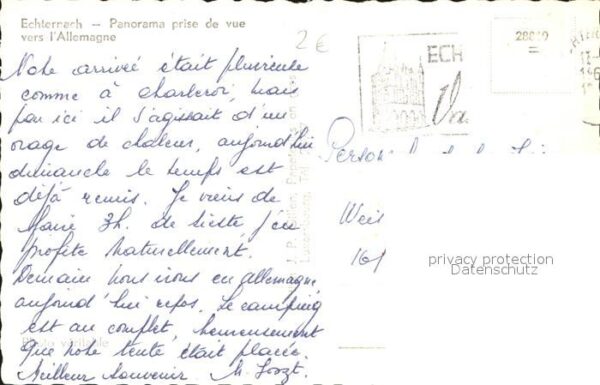 Echternach – Panorama prise de vue
vers l'Allemagne
2€
28849
=
ECH
Notre arrivée était pluvieuse
comme à charleroi, mais
par ici il s'agissait d'un
orage de chaleur, aujourd'hui
dimanche le temps est
déjà remis. Je viens de
faire 3h. de sieste j'en
profite naturellement.
Demain nous irons en allemagne
aujourd'hui repos. Le camping
est au complet, heureusement
que notre tente était placée.
Meilleur souvenir.
Person
Weis
161
privacy protection
Datenschutz
Photo véritable